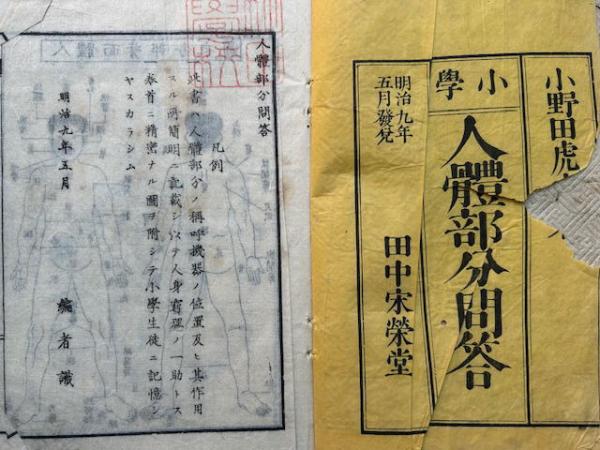 小野田虎
小學
人體部分問答
明治九年
五月發兌
田中宋榮堂
人體部分問答
凡例
此書ハ人體部分ノ稱呼機器ノ位置及ヒ其作用
スル所簡明ニ記載シ以テ人身窮理ノ一助トス
巻首ニ精密ナル圖ヲ附シテ小學生徒ニ記憶シ
ヤスカラシム
明治九年五月
編者識